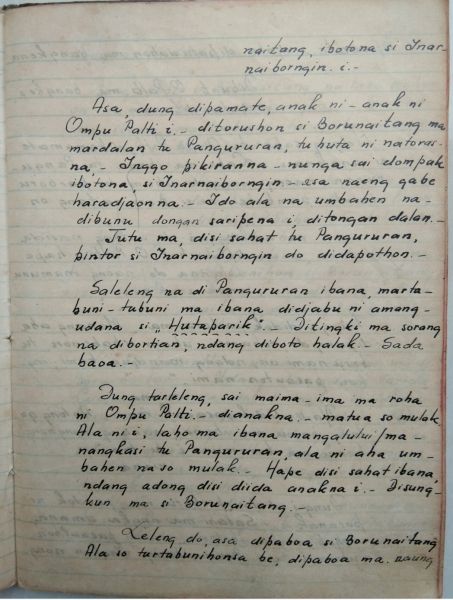 naitang, ibotona si Inar-
naiborngin. i.-
Asa, dung dipamate, anak ni-anak ni
Ompu Palti i.- ditorushon si Borunaitang ma
mardalan tu Pangururan, tu huta ni natoras-
na,- Inggo pikiranna- nunga sai dompak
ibotona, si Inarnaiborngin- asa naeng gabe
haradjaonna.- Ido ala na umbahen na-
dibunu dongan saripena i, ditongan dalan.-
Tutu ma, disi sahat tu Pangururan,
pintor si Inarnaiborngin do didapothon.-
Saleleng na di Pangururan ibana, marta-
buni-tubuni ma ibana didjabu ni amang-
udana si "Hutaparik".- Ditingki ma sorang
na dibortian, ndang diboto halak.- Sada
baoa.-
Dung tarleleng, sai maima-ima ma roha
ni Ompu Palti.- dianakna.- matua so mulak.
Ala ni i, laho ma ibana mangalului/ma-
nangkasi tu Pangururan, ala ni aha um-
bahen na so mulak.- Hape disi sahat ibana,
ndang adong disi diida anakna i.- Disung-
kun ma si Borunaitang.-
Leleng do, asa dipaboa si Borunaitang
Ala so turtabunihonsa be, dipaboa ma. naung